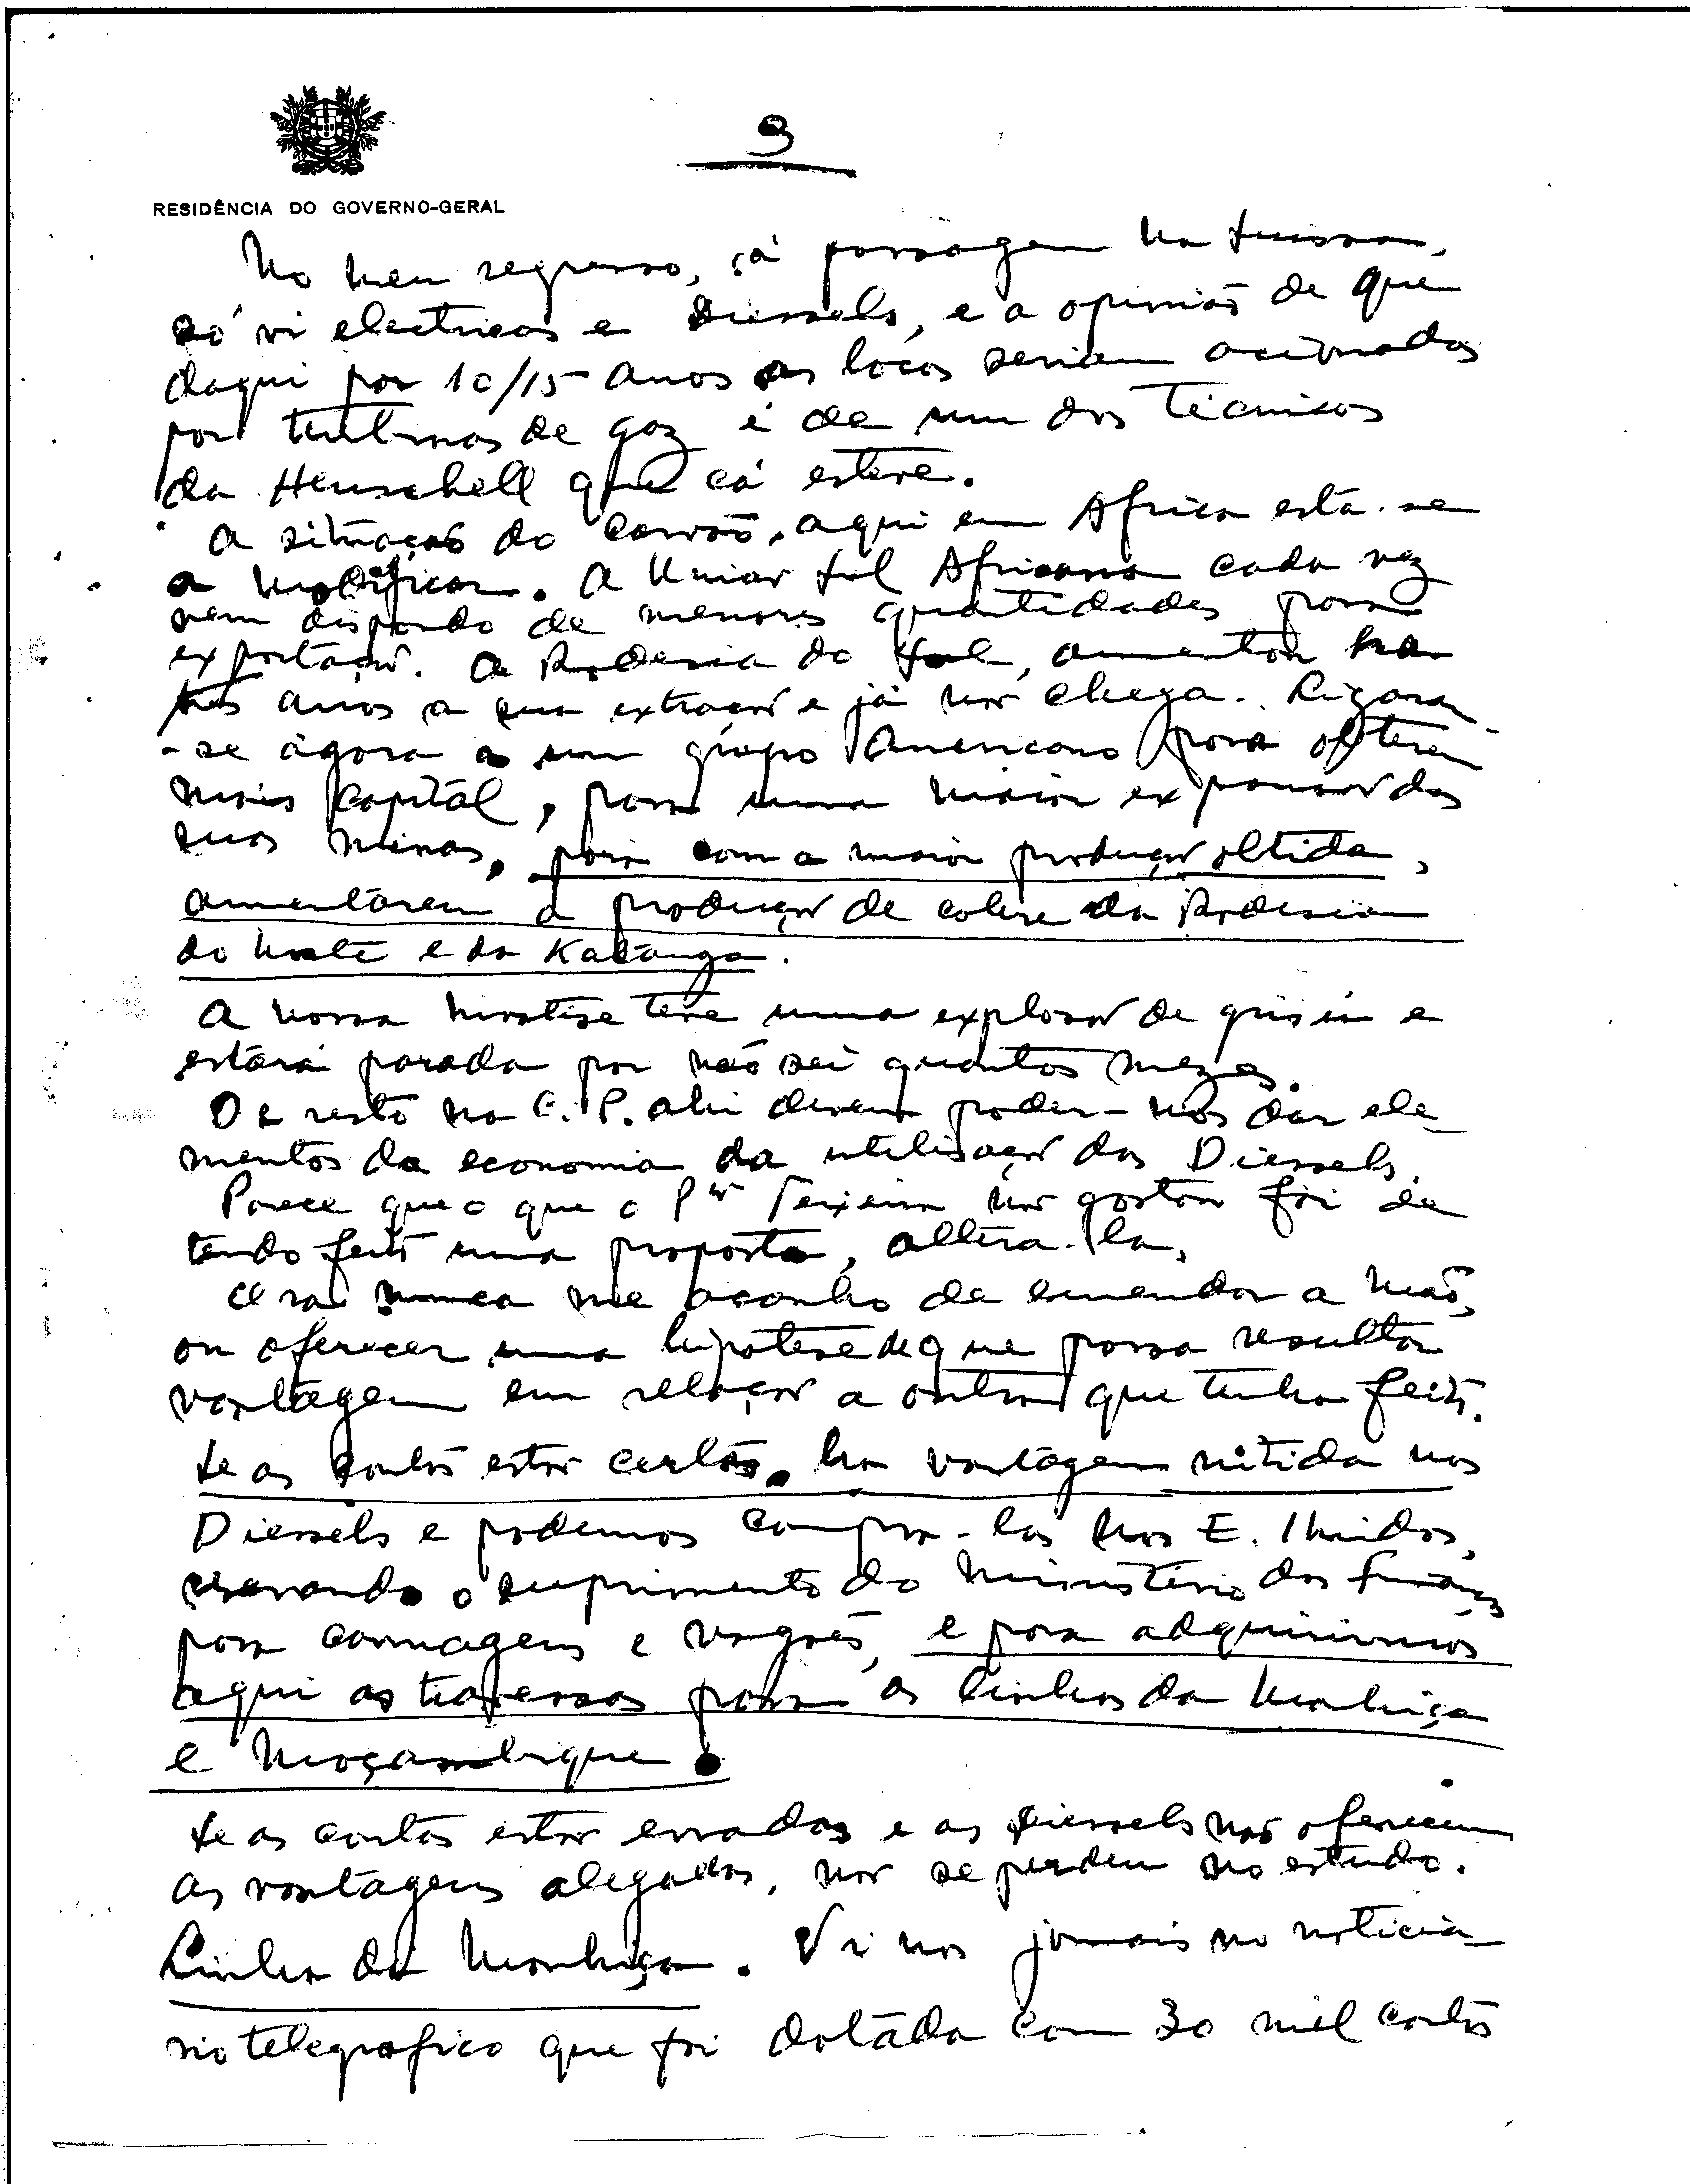 9
RESIDÊNCIA DO GOVERNO-GERAL
No meu regresso, á passagem na Suissa,
só vi electricas e Diessels, e a opinião de que
daqui por 10/15 anos as locos seriam acionadas
por turbinas de gaz é de um dos técnicos
da Henschell que cá esteve.
A situação do carvão, aqui em Africa está-se
a modificar. A União Sul Africana cada vez
vem dispondo de menores quantidades para
exportação. A Rodesia do Sul, aumentou ha
três anos a sua extração e já não chega. Ligaram-
-se agora a um grupo Americano para obterem
mais capital, para uma maior expansão das
suas minas, pois com a maior produção obtida,
aumentarem a produção de cobre da Rodesia
do Norte e da Katanga.
A nossa Moatise teve uma explosão de grisú e
estará parada por não sei quantos mezes.
De resto na C.P. ahi devem poder-nos dar ele-
mentos da economia da utilisação das Diessels.
Parece que o que o Teixeira não gostou foi de
tendo feito uma proposta, altera-la.
Ora nunca me acanho de emendar a mão,
ou oferecer uma hipotese de que possa resultar
vantagem em relação a outra que tenha feito.
Se as contas estão certas, ha vantagem nitida nas
Diessels e podemos compra-las nos E. Unidos,
reservando o suprimento do Ministério das Finanças
para carruagens e vagões, e para adquirirmos
aqui as travessas para as linhas da Manhiça
e Moçambique.
Se as contas estão erradas e as Diessels não oferecem
as vantagens alegadas, não se perdeu no estudo.
Linha da Manhiça. Vi nos jornais no noticiá-
rio telegrafico que foi dotada com 30 mil contos